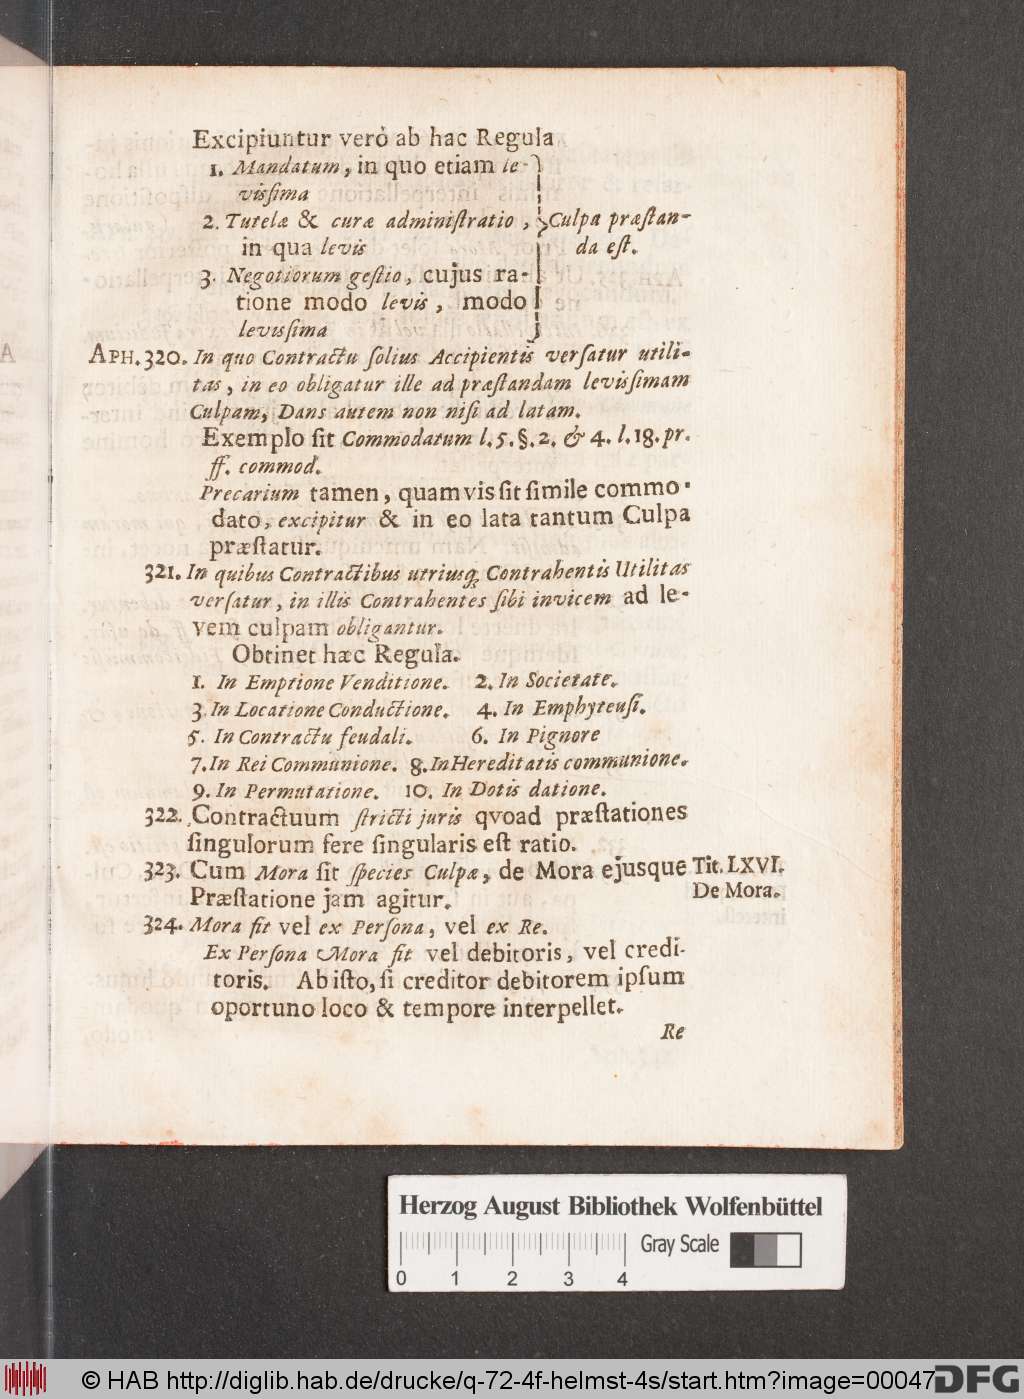 Excipiuntur verò ab hac Regula
1. Mandatum, in quo etiam le-
viſſima
2. Tutelæ & curæ adminiſtratio, Culpa præſtan-
in qua levis da eſt.
3. Negotiorum geſtio, cujus ra-
tione modo levis, modo
leviſſima
APH. 320. In quo Contractu ſolius Accipientis verſatur utili-
tas, in eo obligatur ille ad præſtandam leviſſimam
Culpam, Dans autem non niſi ad latam.
Exemplo ſit Commodatum l. 5. §. 2. & 4. l. 18. pr.
ff. commod.
Precarium tamen, quamvis ſit ſimile commo-
dato, excipitur & in eo lata tantum Culpa
præſtatur.
321. In quibus Contractibus utriusq; Contrahentis Utilitas
verſatur, in illis Contrahentes ſibi invicem ad le-
vem culpam obligantur.
Obtinet hæc Regula.
1. In Emptione Venditione. 2. In Societate.
3. In Locatione Conductione. 4. In Emphyteuſi.
5. In Contractu feudali. 6. In Pignore
7. In Rei Communione. 8. In Hereditatis communione.
9. In Permutatione. 10. In Dotis datione.
322. Contractuum ſtricti juris qvoad præſtationes
ſingulorum fere ſingularis eſt ratio.
323. Cum Mora ſit ſpecies Culpæ, de Mora ejusque Tit. LXVI.
Præſtatione jam agitur. De Mora.
324. Mora fit vel ex Perſona, vel ex Re.
Ex Perſona Mora fit vel debitoris, vel credi-
toris. Ab iſto, ſi creditor debitorem ipſum
oportuno loco & tempore interpellet.
Re
Herzog August Bibliothek Wolfenbüttel
Gray Scale
0 1 2 3 4
© HAB http://diglib.hab.de/drucke/q-72-4f-helmst-4s/start.htm?image=00047 DFG